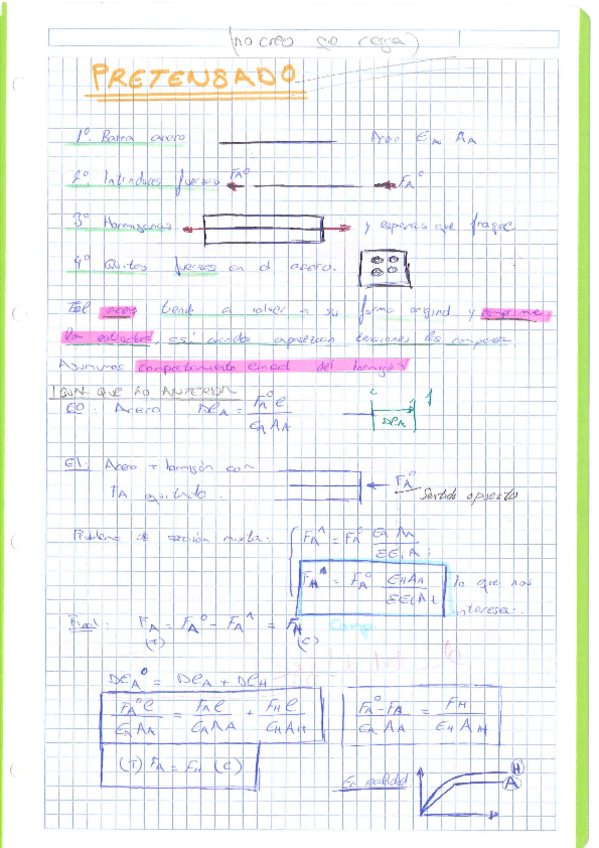 (no creo se coja)
PRETENSADO
1º. Barra acero Area EA, AA
2º. Introduces fuerzas FA⁰ FA⁰
3º Hormigonas y esperas que fragüe
4º Quitas fuerzas en el acero.
El acero tiende a volver a su forma original y comprime
la estructura, así cuando aparezcan tensiones las compensa.
Asumimos comportamiento lineal del hormigón
IGUAL QUE LO ANTERIOR
E0: Acero ΔlA = FA⁰ l / EA AA ΔlA
E1: Acero + hormigón con FA⁰
FA quitado. Sentido opuesto
Problema de sección mixta: FA¹ = FA⁰ EA AA / ΣEi Ai
FH¹ = FA⁰ EH AH / ΣEi Ai lo que nos
interesa.
Final: FA = FA⁰ - FA¹ = FH Comp
(T) (C)
ΔlA⁰ = ΔlA + ΔlH
FA⁰ l / EA AA = FA l / EA AA + FH l / EH AH FA⁰ - FA / EA AA = FH / EH AH
(T) FA = FH (C)
En realidad H A